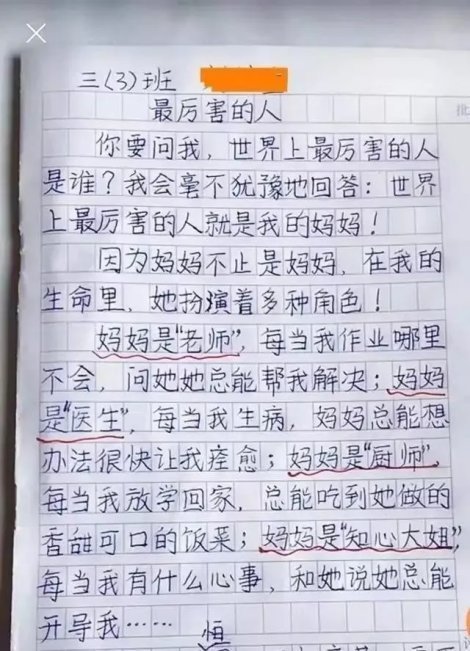 三(3)班
最厉害的人
你要问我，世界上最厉害的人
是谁？我会毫不犹豫地回答：世界
上最厉害的人就是我的妈妈！
因为妈妈不止是妈妈，在我的
生命里，她扮演着多种角色！
妈妈是“老师”，每当我作业哪里
不会，问她她总能帮我解决；妈妈
是“医生”，每当我生病，妈妈总能想
办法很快让我痊愈；妈妈是“厨师”，
每当我放学回家，总能吃到她做的
香甜可口的饭菜；妈妈是“知心大姐”，
每当我有什么心事，和她说她总能
开导我……
恒
批